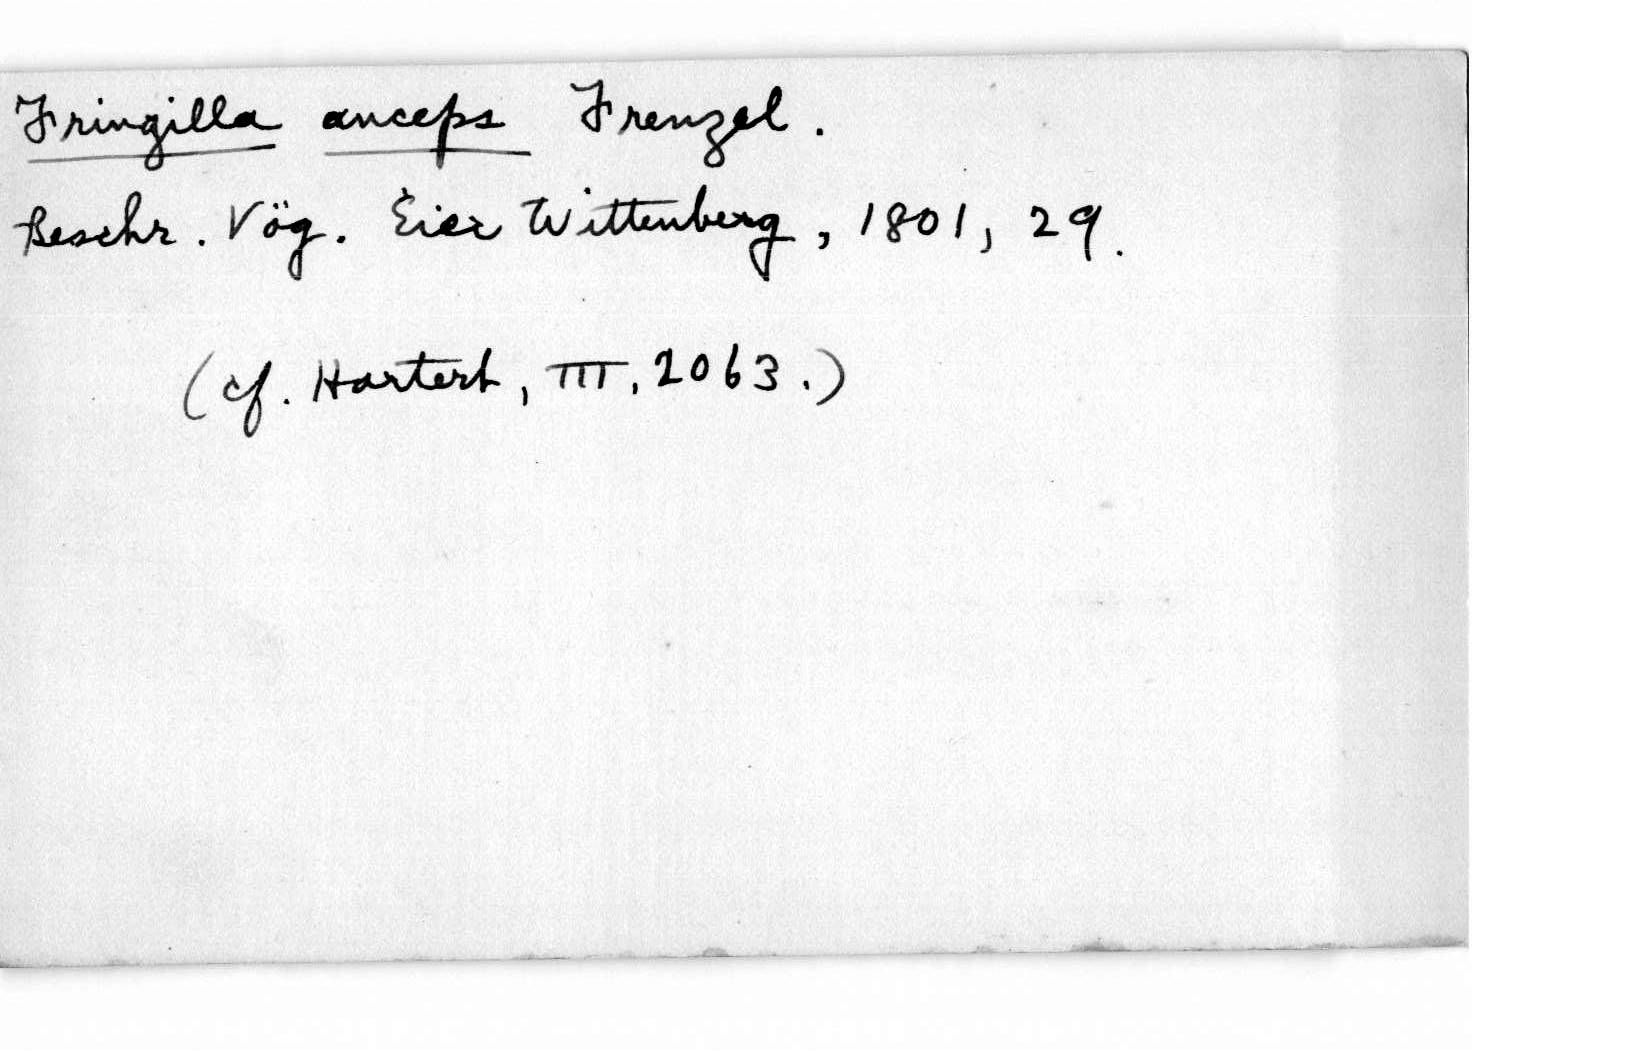 Fringilla anceps Frenzel.
Beschr. Vög. Eier Wittenberg, 1801, 29.
(cf. Hartert, III, 2063.)